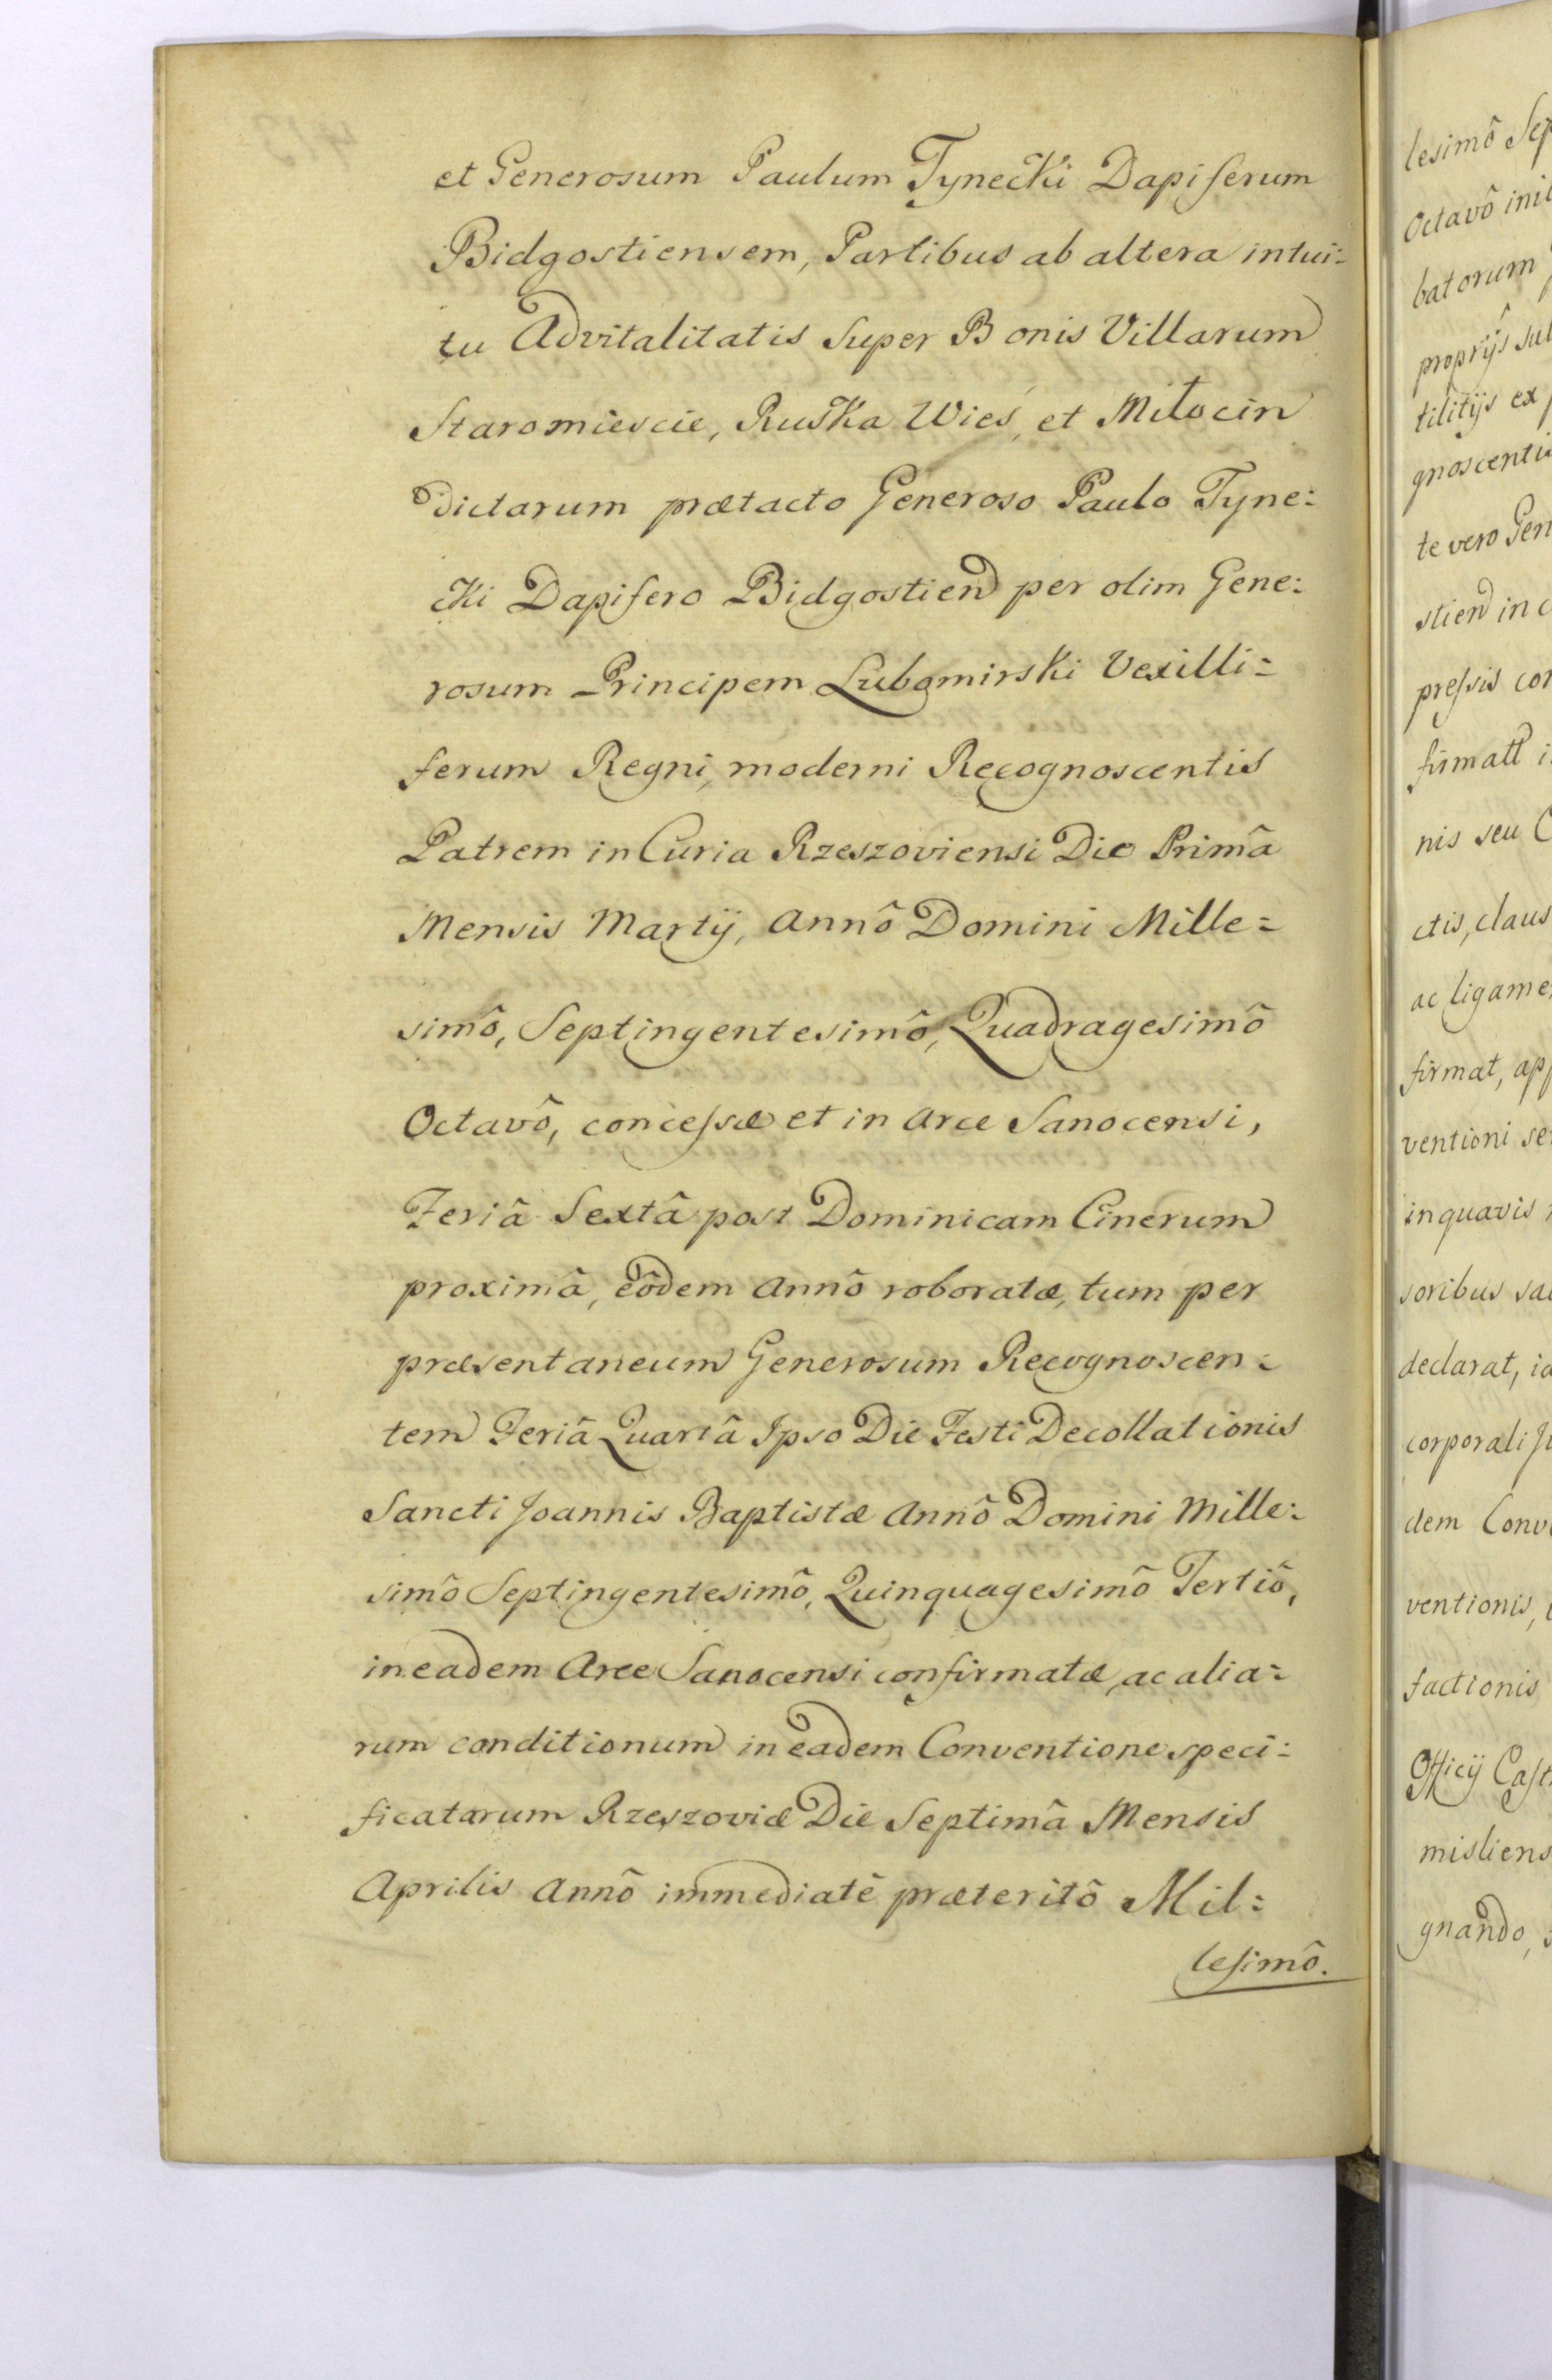 et Generosum Paulum Tynecki Dapiferum
Bidgostiensem, Partibus ab altera intui=
tu Advitalitatis super Bonis Villarum
Staromiescie, Ruska Wieś, et Miłocin
dictarum prætacto Generoso Paulo Tyne=
cki Dapifero Bidgostien per olim Gene=
rosum Principem Lubomirski Vexilli=
ferum Regni, moderni Recognoscentis
Patrem in Curia Rzeszoviensi Die Primâ
Mensis Martij, Annô Domini Mille=
simô, Septingentesimô, Quadragesimô
Octavô, concessæ et in Arce Sanocensi,
Feriâ Sextâ post Dominicam Cinerum
proximâ, eôdem Annô roboratæ, tum per
præsentaneum Generosum Recognoscen=
tem Feriâ Quartâ Ipso Die Festi Decollationis
Sancti Joannis Baptistæ Annô Domini Mille=
simô Septingentesimô, Quinquagesimô Tertiô,
in eadem Arce Sanocensi confirmatæ, ac alia=
rum conditionum in eadem Conventione speci=
ficatarum Rzeszoviæ Die Septimâ Mensis
Aprilis Annô immediatê præteritô Mil=
lesimô.
lesimô Sep
Octavô ini
batorum
proprijs su
tilitijs ex
gnoscenti
te vero Gen
stien in c
pressis con
firmatt i
nis seu C
ctis, claus
ac ligame
firmat, app
ventioni se
in quavis
soribus sa
declarat, id
corporali Ju
dem Conv
ventionis,
factionis
Officij Cast
misliens
gnando,